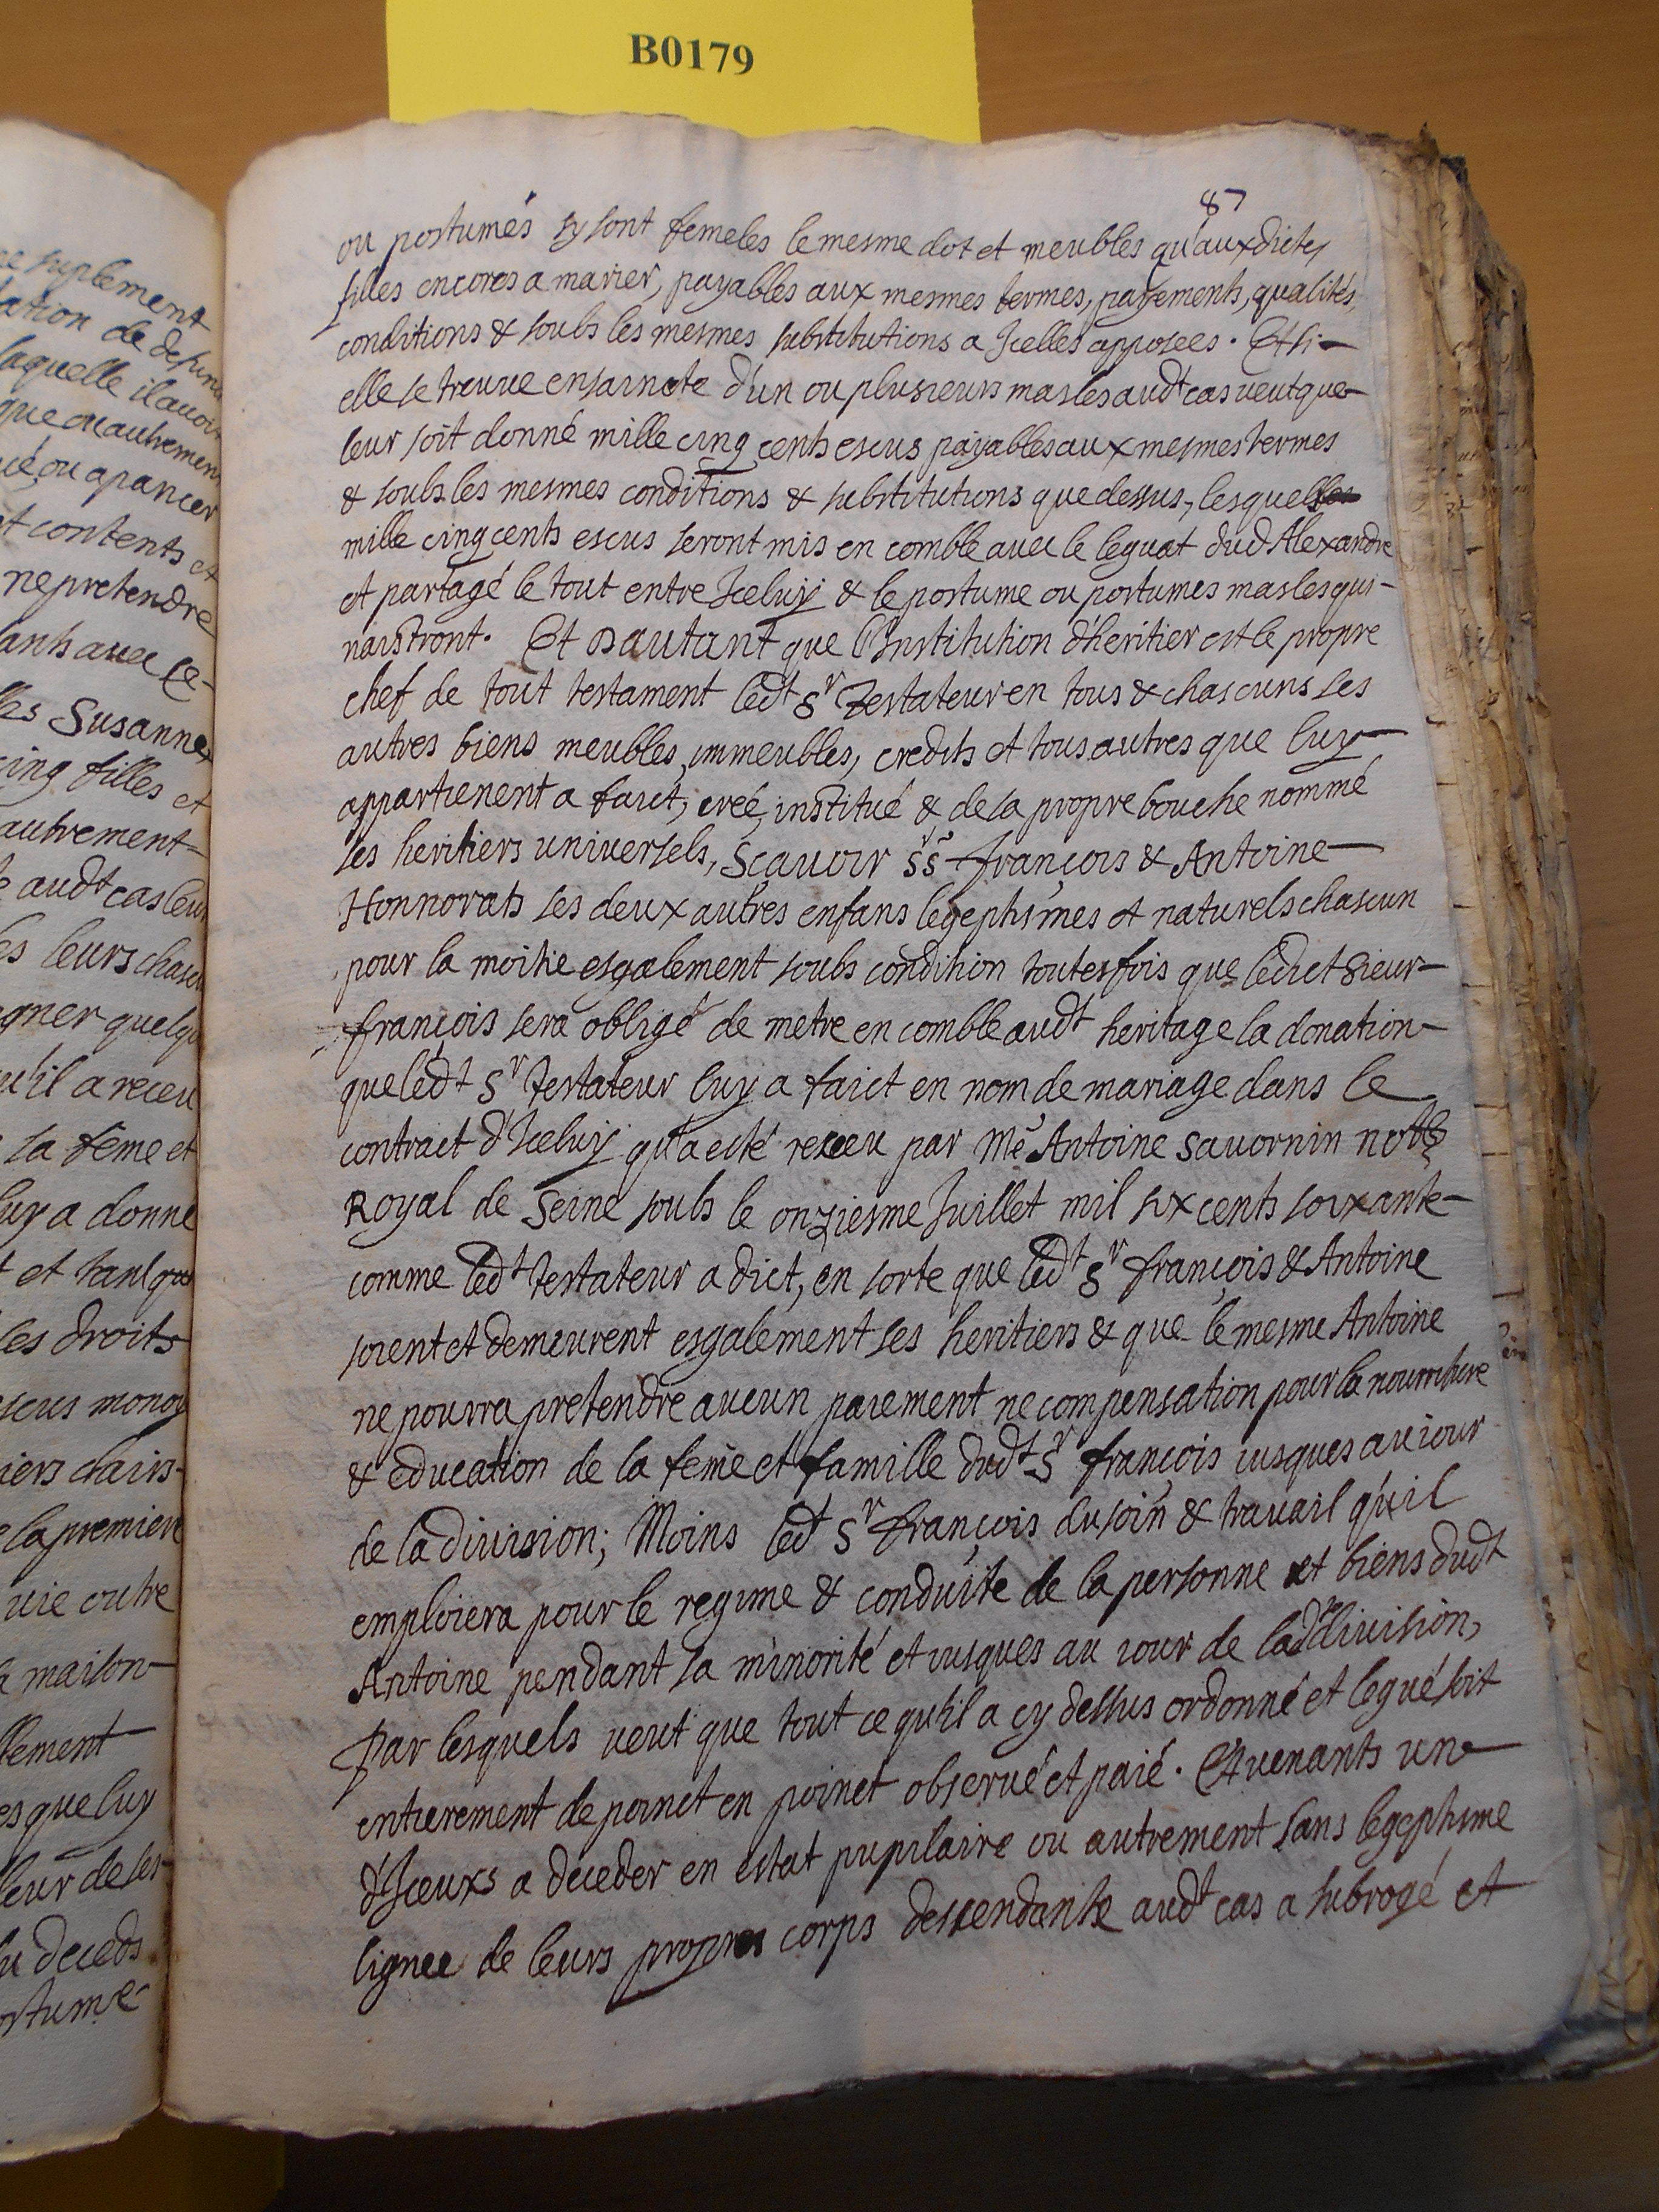 B0179
87
ou postumés sy sont femeles le mesme dot et meubles qu'aux dictes
filles encores a marier, payables aux mesmes termes, payements, qualités,
conditions & soubs les mesmes substitutions a Icelles apposees. Et si
elle se treuve ensainte d'un ou plusieurs masles audt cas veut que
leur soit donné mille cinq cents escus payables aux mesmes termes
& soubs les mesmes conditions & substitutions que dessus, lesquelles
mille cinq cents escus seront mis en comble avec le leguat dud Alexandre
et partagé le tout entre Iceluy & le postume ou postumes masles qui
naistront. Et dautant que l'Institution d'heritier est le propre
chef de tout testament ledt Sr Testateur en tous & chascuns ses
autres biens meubles, immeubles, credits et tous autres que luy
appartienent a faict, creé, institué & de sa propre bouche nommé
ses heritiers universels, Scavoir Srs françois & Antoine
Honnorats ses deux autres enfans legephimes et naturels chascun
pour la moitie esgalement soubs condition toutesfois que ledict Sieur
françois sera obligé de metre en comble audt heritage la donation
que ledt Sr Testateur luy a faict en nom de mariage dans le
contract d'Iceluy qu'a esté receu par Me Antoine Savornin notre
Royal de Seine soubs le onziesme Juillet mil six cents soixante
comme ledt Testateur a dict, en sorte que ledt Sr françois & Antoine
soient et demeurent esgalement ses heritiers & que le mesme Antoine
ne pourra pretendre aucun paiement ne compensation pour la nourriture
& education de la feme et famille dudt Sr françois iusques au iour
de la division; Moins ledt Sr françois du soin & travail qu'il
emploiera pour le regime & conduite de la personne et biens dudt
Antoine pendant sa minorité et iusques au iour de ladte division,
Par lesquels veut que tout ce qu'il a cy dessus ordonné et legué soit
entierement de poinct en poinct observé et paié. Et venants un
d'Iceuxs a deceder en estat pupilaire ou autrement sans legephime
lignee de leurs propres corps descendante audt cas a subrogé et